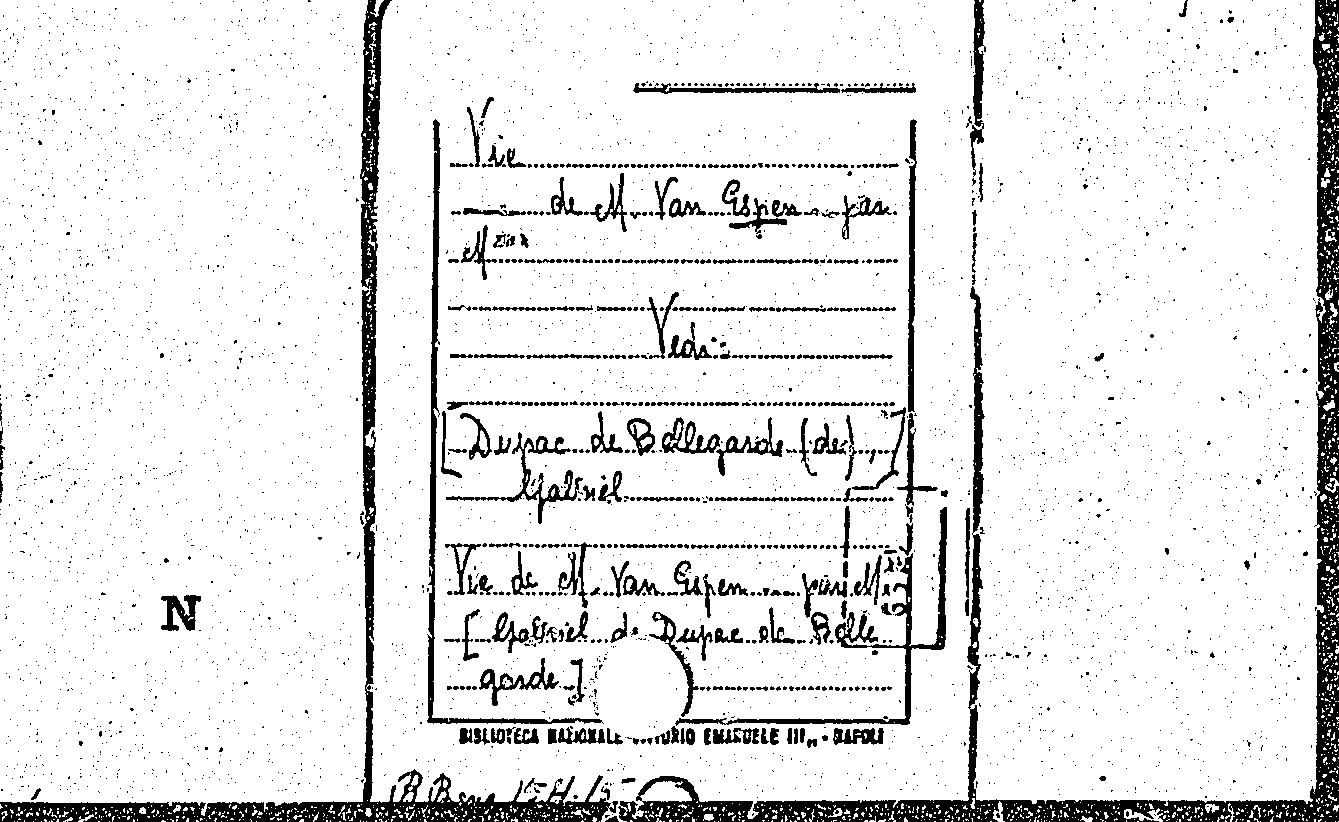 Vie
de M. Van Espen... par
M***
Vedi:
[Dupac de Bellegarde (de),]
Gabriel
Vie de M. Van Espen... par M***
[Gabriel de Dupac de Belle
garde]
N
BIBLIOTECA NAZIONALE VITTORIO EMANUELE III„ - NAPOLI